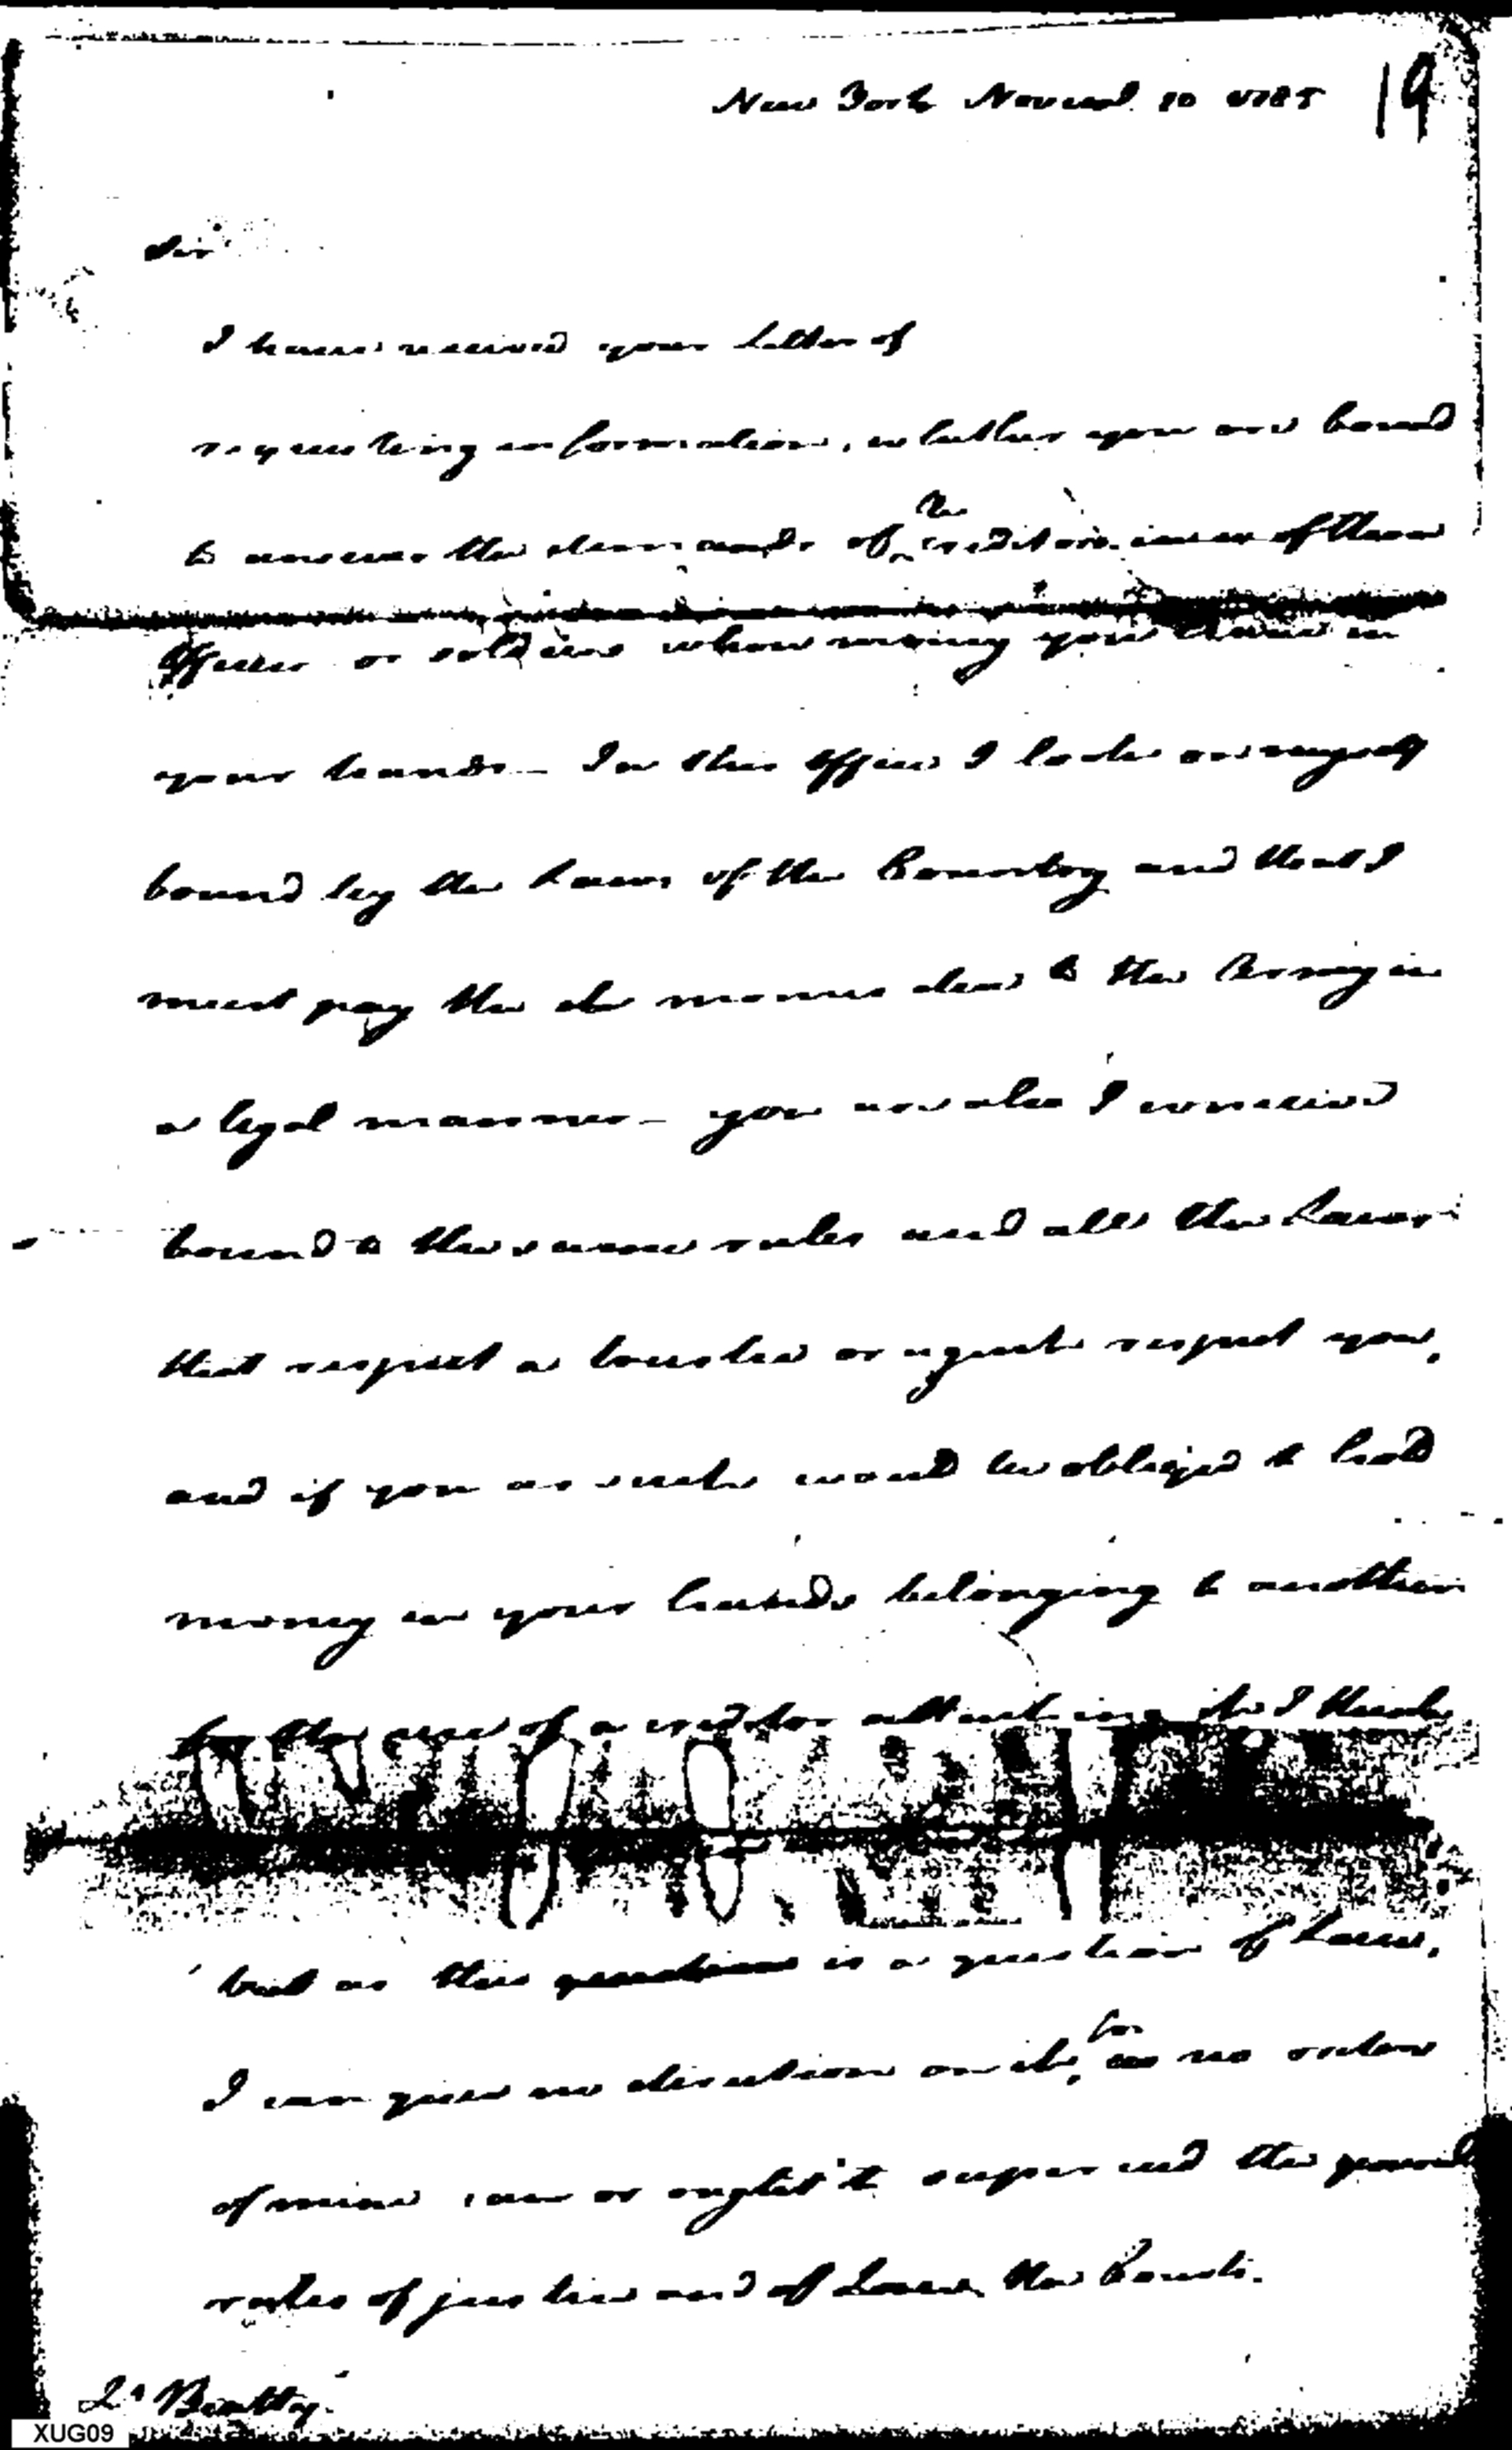 New York Novemb. 10 1785 19
Sir
I have received your letter of
requesting information, whether you are bound
the
to answer the demands of creditors of those
Officers or soldiers whose money you have in
your hands - In this Office I look on myself
bound by the Laws of the Country and that I
must pay the monies due to the Army in
a legal manner - you are also I conceive
bound to the same rules and all the Laws
that respect a trustee or agent respect you,
and if you as such would be obliged to hold
money in your hands belonging to another
for the use of a creditor attaching it I think
but as this question is a question of Law,
for
I can give no direction on it, as no order
of mine can or ought to supersed the general
rules of justice and of Law the Courts.
Lt Beatty
XUG09